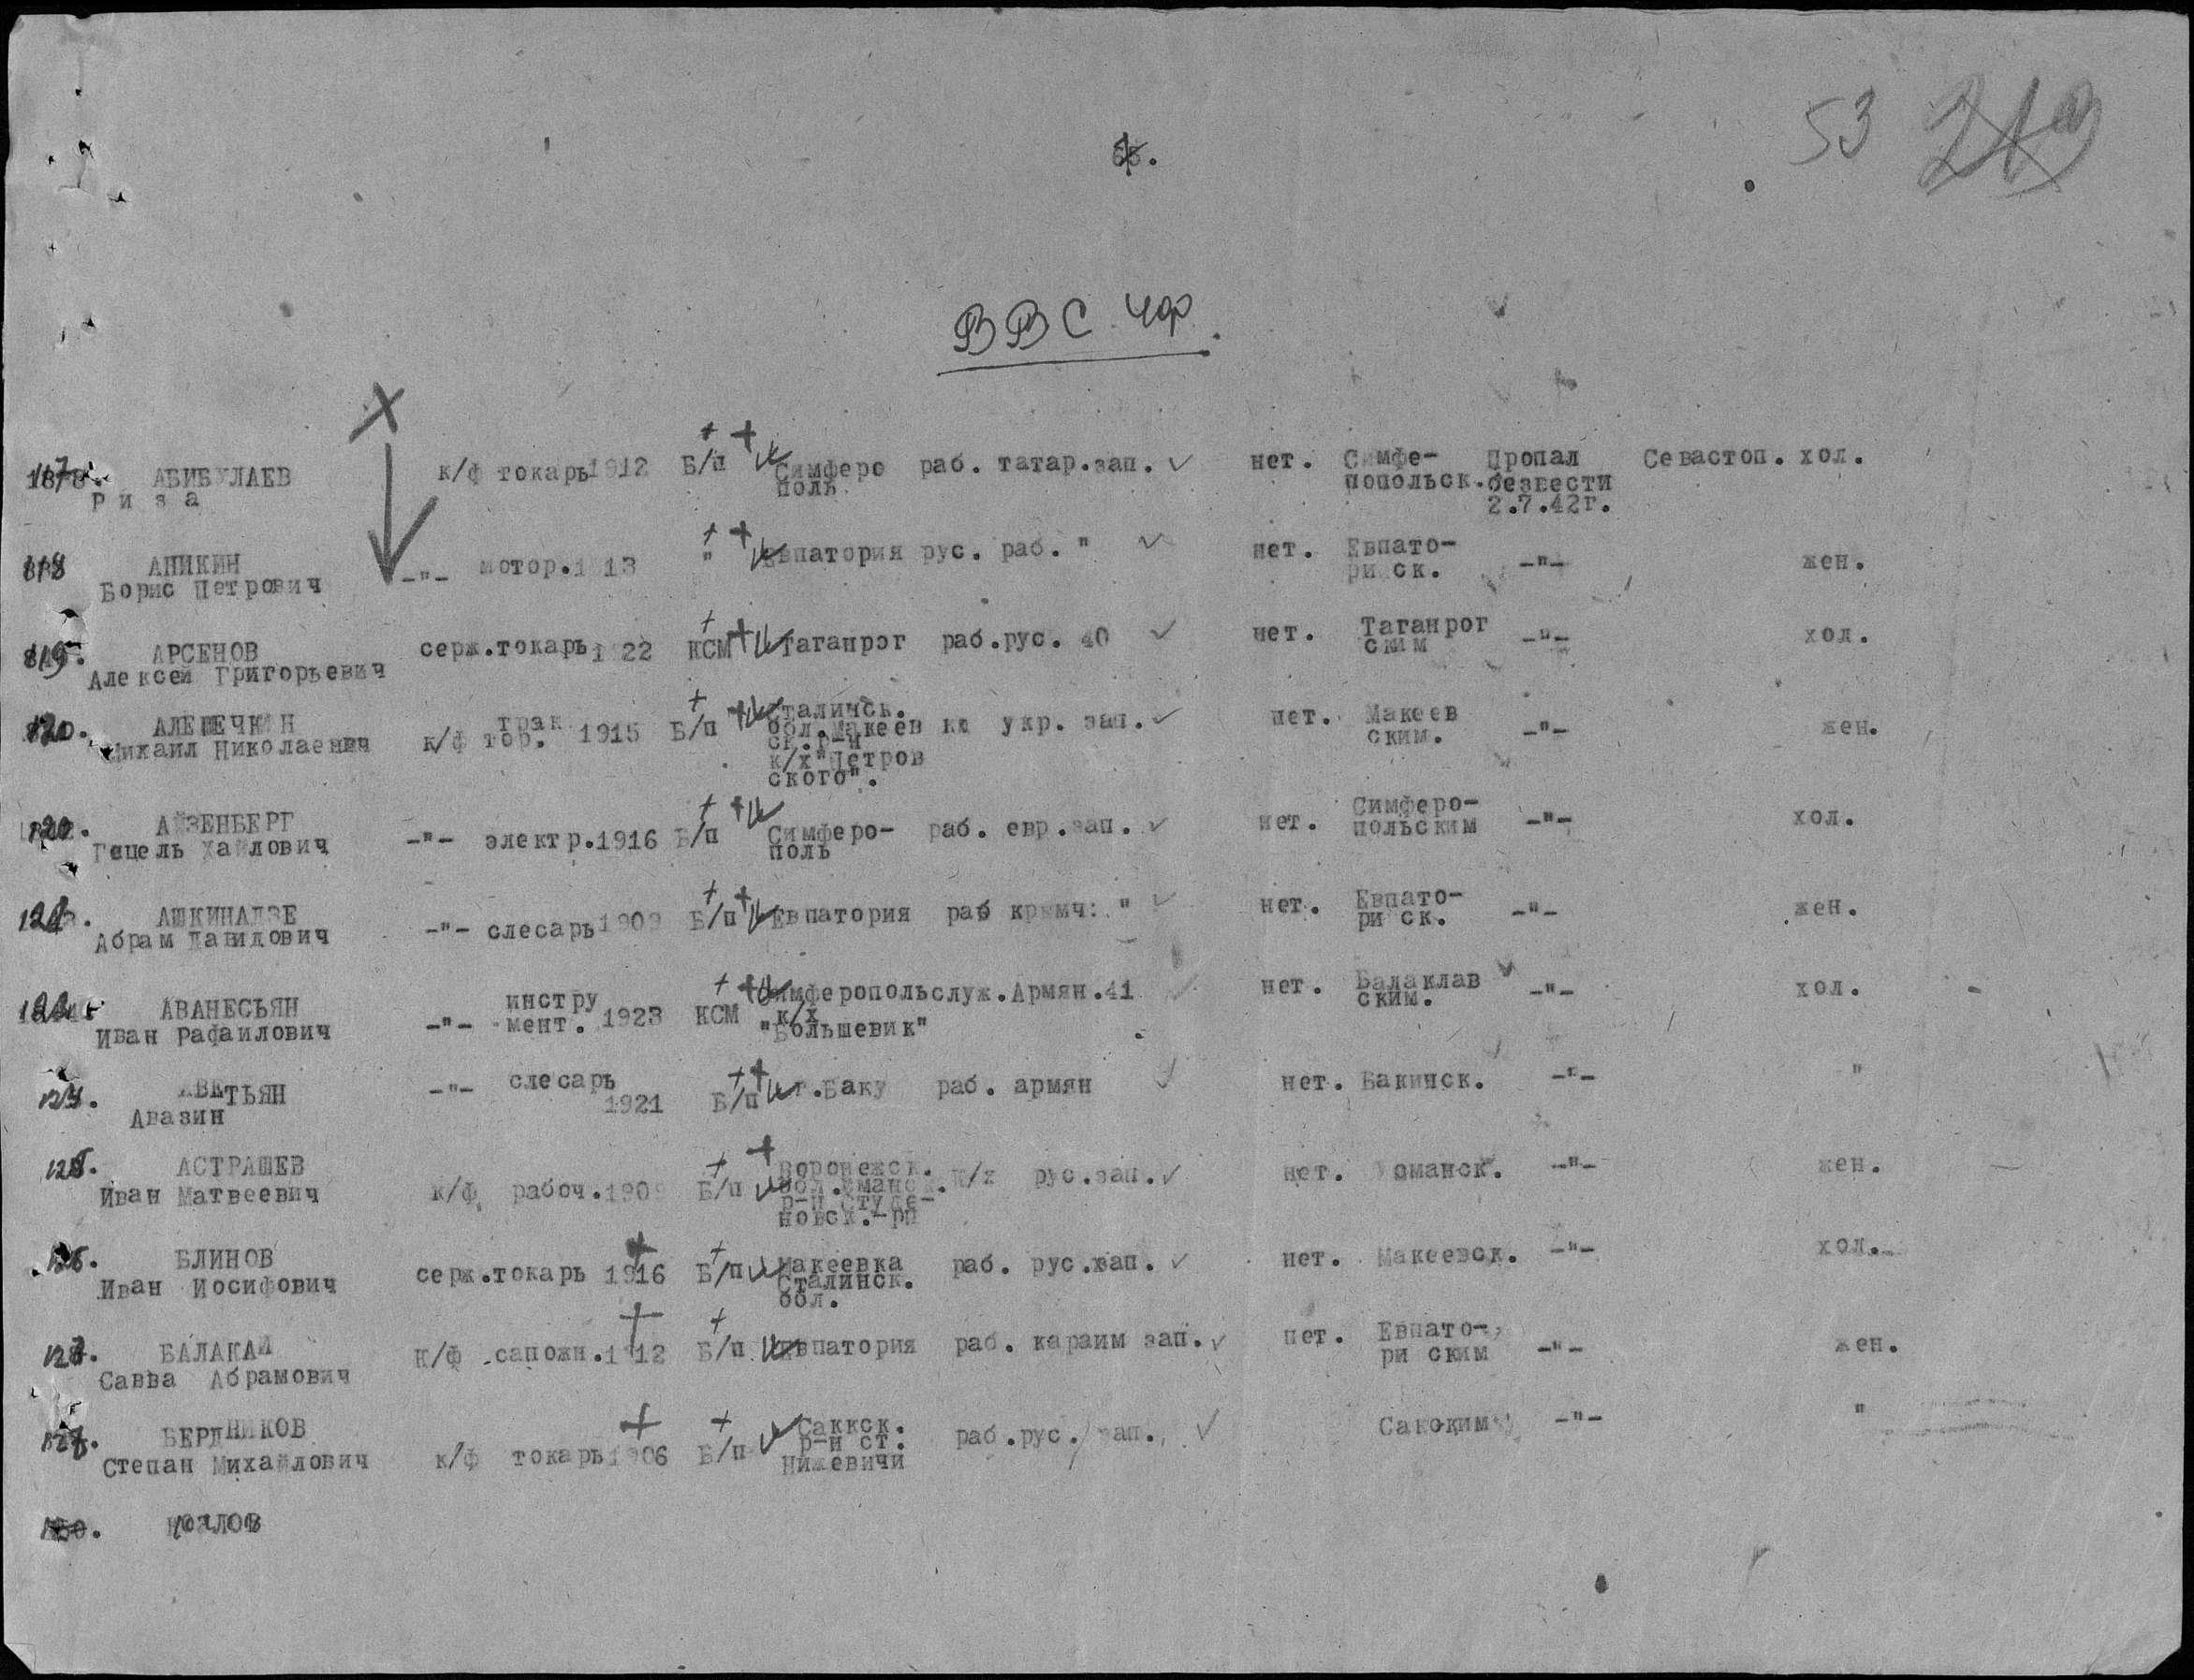 53
ВВС ЧФ.
АБИБУЛАЕВ к/ф токарь 1912 Б/п Симферо раб. татар. зап. нет. Симфе- Пропал Севастоп. хол.
Риза поль попольск. безвести
2.7.42г.
118 АНИКИН -"- мотор. 1913 " Евпатория рус. раб. " нет. Евпато- -"- жен.
Борис Петрович ри ск.
119. АРСЕНОВ серж. токарь 1922 КСМ Таганрог раб. рус. 40 нет. Таганрог -"- хол.
Алексей Григорьевич ским
120. АЛЕШЕЧКИН к/ф трак 1915 Б/п Сталинск. укр. зап. нет. Макеев -"- жен.
Михаил Николаевич тор. обл. Макеев ским.
ск. р-н
к/х "Петров
ского".
АЙЗЕНБЕРГ -"- электр. 1916 Б/п Симферо- раб. евр. зап. нет. Симферо- -"- хол.
Гецель Хаймович поль польским
АШКИНАДЗЕ -"- слесарь Б/п Евпатория раб крымч: " нет. Евпато- -"- жен.
Абрам Давидович ри ск.
АВАНЕСЬЯН -"- инстру 1923 КСМ Симферополь служ. Армян. 41 нет. Балаклав -"- хол.
Иван Рафаилович мент. к/х ским.
"Большевик"
124. АВЕТЬЯН -"- слесарь Б/п г. Баку раб. армян нет. Бакинск. -"- "
Авазин 1921
125. АСТРАШЕВ к/ф рабоч. Б/п Воронежск. к/х рус. зап. нет. -"- жен.
Иван Матвеевич обл.
р-н Студе-
новск.
126. БЛИНОВ серж. токарь 1916 Б/п Макеевка раб. рус. зап. нет. Макеевск. -"- хол.
Иван Иосифович Сталинск.
обл.
127. БАЛАКАЙ к/ф сапожн. 1912 Б/п Евпатория раб. караим зап. нет. Евпато- -"- жен.
Савва Абрамович ри ским
128. БЕРДНИКОВ к/ф токарь 1906 Б/п Саккск. раб. рус. зап. Сакским -"- "
Степан Михайлович р-н ст.
Нижевичи
КОЗЛОВ